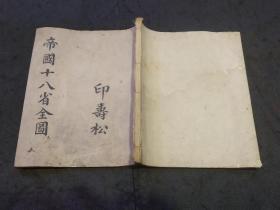 帝國十八省全圖
印壽松